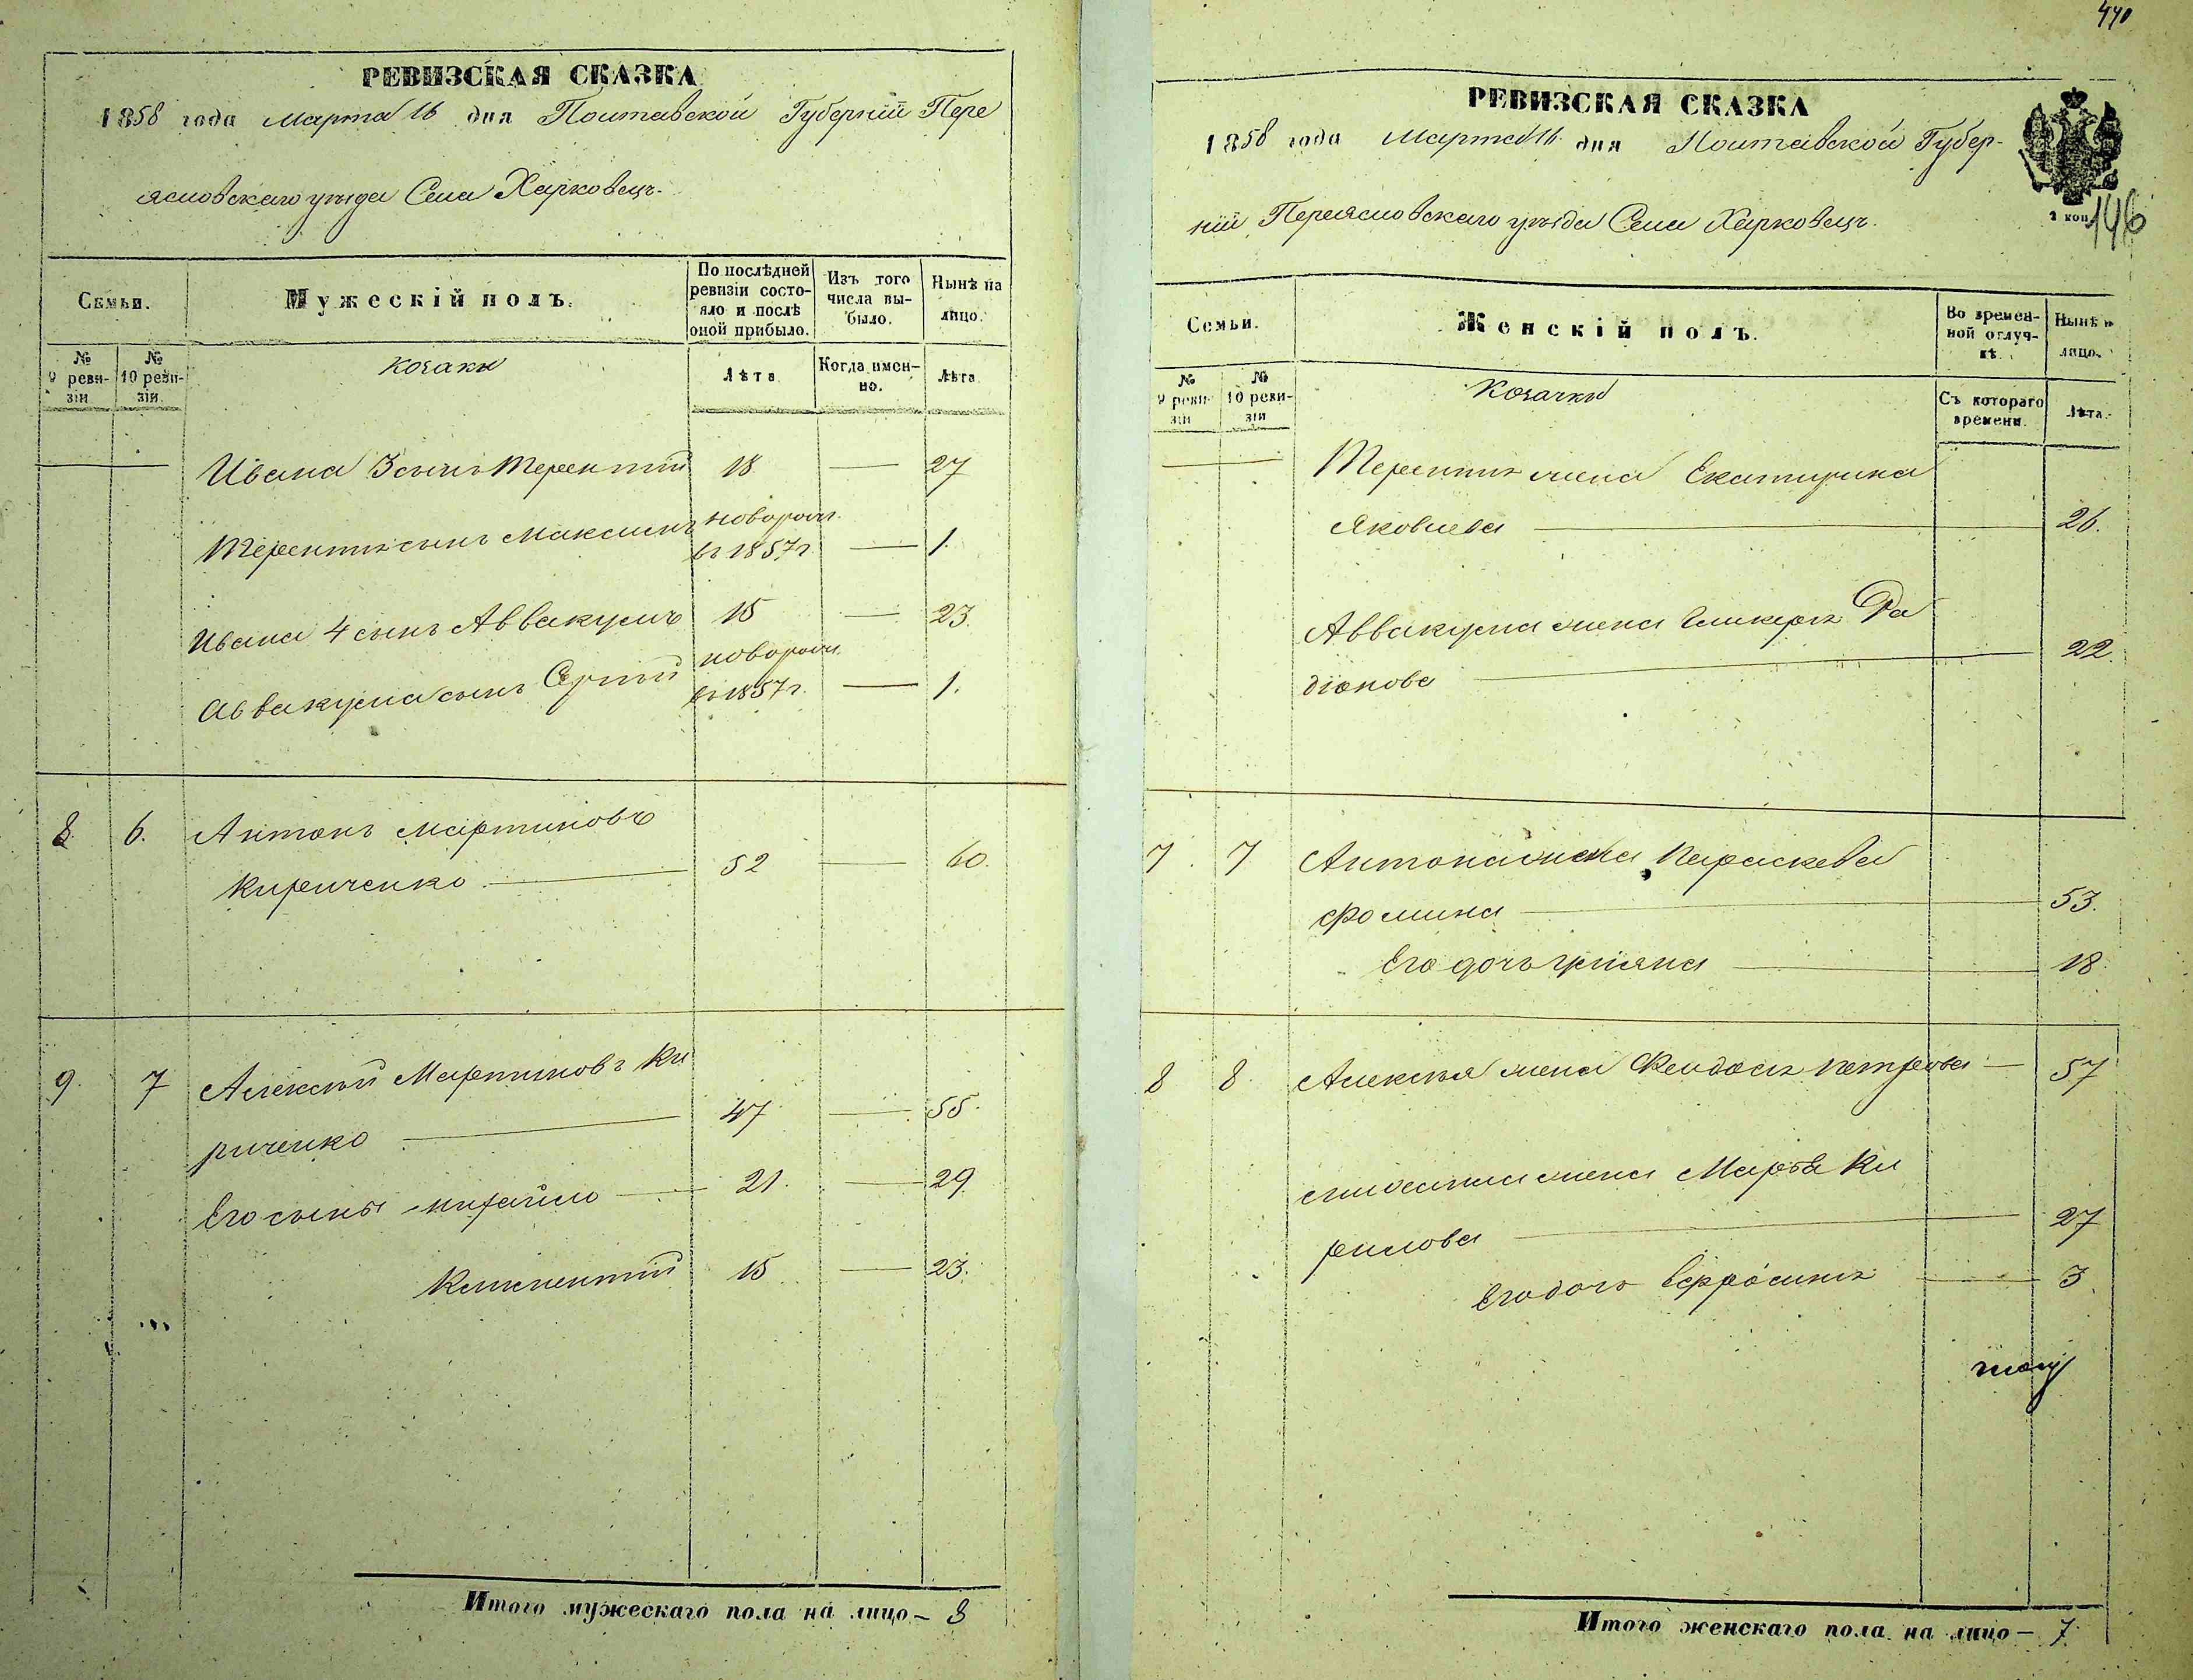 РЕВИЗСКАЯ СКАЗКА
1858 года Марта 16 дня Полтавской Губерніи Пере
яславскаго уѣзда Села Харковецъ.
Семьи.
Мужескій полъ.
По послѣдней ревизіи состояло и послѣ оной прибыло.
Изъ того числа выбыло.
Нынѣ на лицо.
№ 9 ревизіи
№ 10 ревизіи.
Козаки
Лѣта
Когда именно.
Лѣта.
Ивана 3 сынъ Терентій 18 — 27
Терентія сынъ Максимъ новорож. въ 1857 г. — 1.
Ивана 4 сынъ Аввакумъ 15 — 23.
Аввакума сынъ Сергѣй новорож. въ 1857 г. — 1.
8. 6. Антонъ Мартиновъ
Кириченко — 52 — 60.
9. 7 Алексѣй Мартиновъ Ки
риченко — 47 — 55.
Его сыны Михайло — 21. — 29.
Климентій 15 — 23.
Итого мужескаго пола на лицо — 8
440
РЕВИЗСКАЯ СКАЗКА
1858 года Марта 16 дня Полтавской Губер-
ніи Переяславскаго уѣзда Села Харковецъ.
2 коп
146
Семьи.
Женскій полъ.
Во временной отлучкѣ.
Нынѣ на лицо.
№ 9 ревизіи
№ 10 ревизіи
Козачки
Съ котораго времени.
Лѣта.
Терентія жена Екатирина
Яковлева — 26.
Аввакума жена Гликерія Ра
діонова — 22.
7. 7 Антона жена Параскева
Фомина — 53.
Его дочь Уліяна — 18.
8 8. Алексѣя жена Феодосія Петрова — 57
Михайла жена Марѳа Ки
рилова — 27
Его дочь Евфросинія — 3.
Итого женскаго пола на лицо — 7.